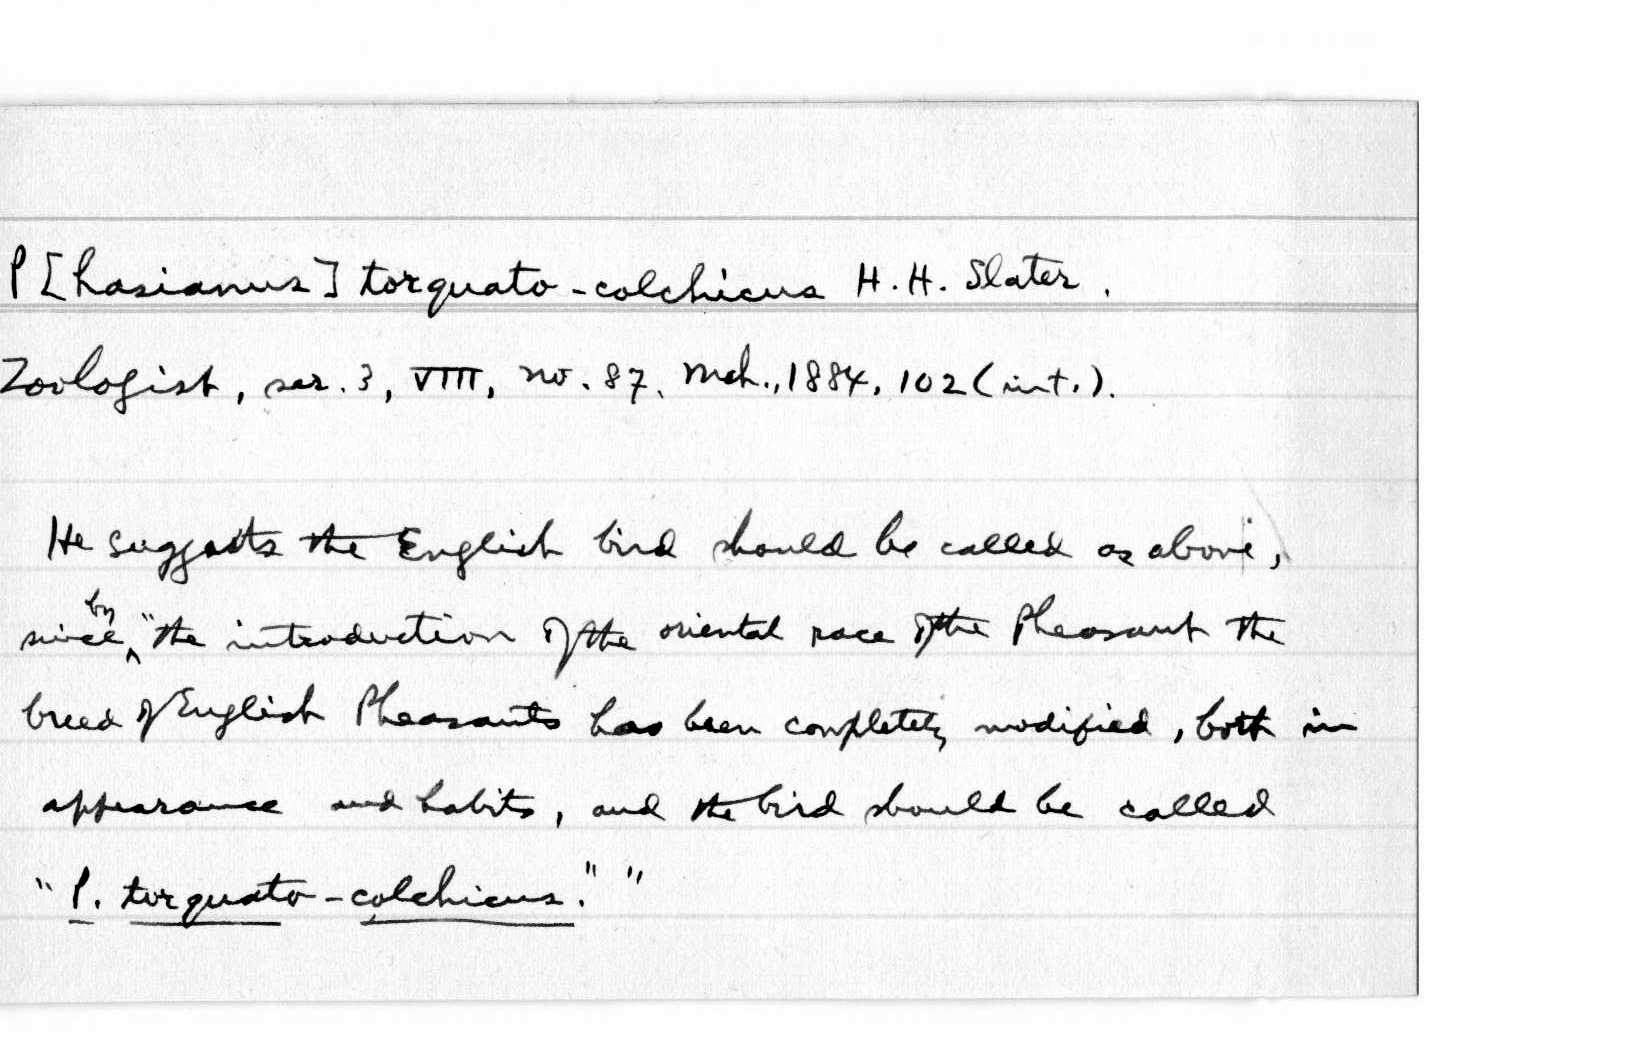 P[hasianus] torquato-colchicus H.H. Slater.
Zoologist, ser. 3, VIII, no. 87, Mch., 1884, 102 (int.).
He suggests the English bird should be called as above,
since by "the introduction of the oriental race of the Pheasant the
breed of English Pheasants has been completely modified, both in
appearance and habits, and the bird should be called
"P. torquato-colchicus." "